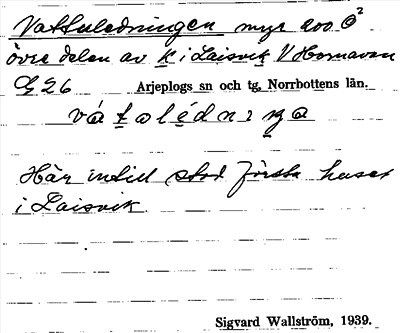 Vattuledningen myr 200 θ²
övre delen av k i Laisvik V Hornavan
G 26 Arjeplogs sn och tg, Norrbottens län.
vátolédnıŋa
Här intill stod första huset
i Laisvik
Sigvard Wallström, 1939.